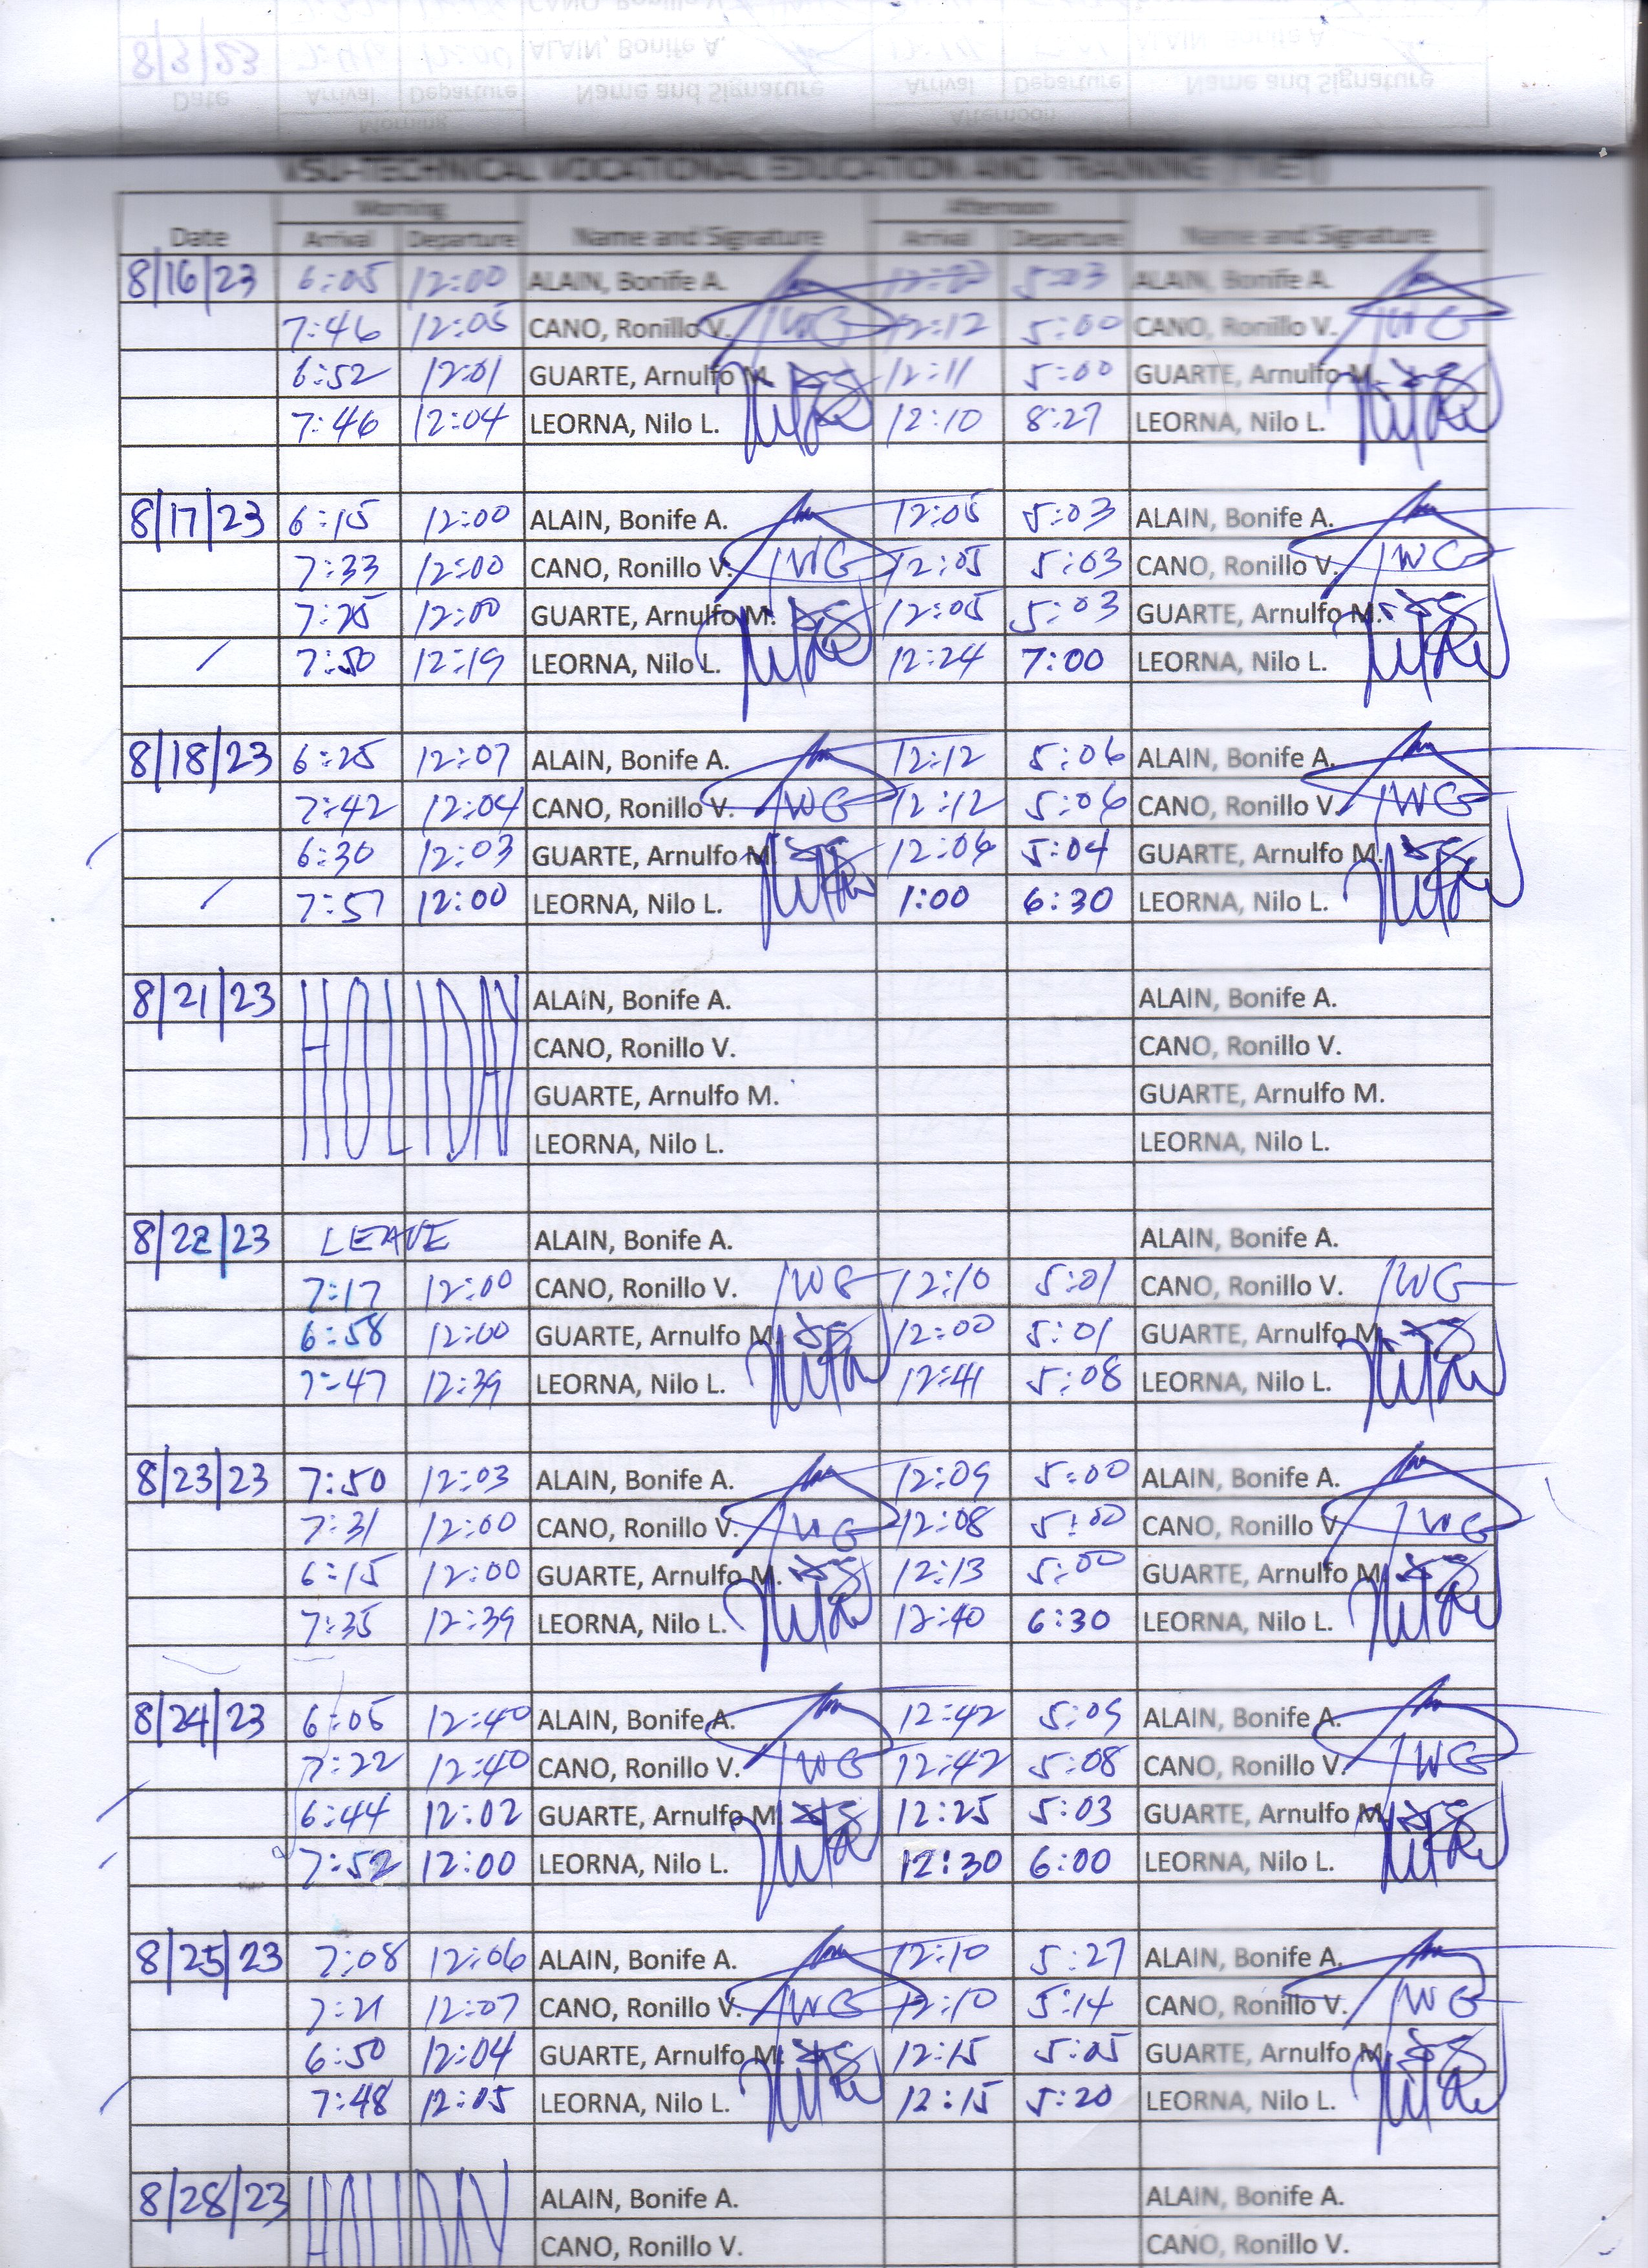 VSU-TECHNICAL VOCATIONAL EDUCATION AND TRAINING (TVET)
Morning Afternoon
Date Arrival Departure Name and Signature Arrival Departure Name and Signature
8/16/23 6:05 12:00 ALAIN, Bonife A. 5:03 ALAIN, Bonife A.
7:46 12:05 CANO, Ronillo V. 12:12 5:00 CANO, Ronillo V.
6:52 12:01 GUARTE, Arnulfo M. 12:11 5:00 GUARTE, Arnulfo M.
7:46 12:04 LEORNA, Nilo L. 12:10 8:27 LEORNA, Nilo L.
8/17/23 6:15 12:00 ALAIN, Bonife A. 12:05 5:03 ALAIN, Bonife A.
7:33 12:00 CANO, Ronillo V. 12:05 5:03 CANO, Ronillo V.
7:25 12:00 GUARTE, Arnulfo M. 12:05 5:03 GUARTE, Arnulfo M.
7:50 12:19 LEORNA, Nilo L. 12:24 7:00 LEORNA, Nilo L.
8/18/23 6:25 12:07 ALAIN, Bonife A. 12:12 5:06 ALAIN, Bonife A.
7:42 12:04 CANO, Ronillo V. 12:12 5:06 CANO, Ronillo V.
6:30 12:03 GUARTE, Arnulfo M. 12:06 5:04 GUARTE, Arnulfo M.
7:57 12:00 LEORNA, Nilo L. 1:00 6:30 LEORNA, Nilo L.
8/21/23 HOLIDAY ALAIN, Bonife A. ALAIN, Bonife A.
CANO, Ronillo V. CANO, Ronillo V.
GUARTE, Arnulfo M. GUARTE, Arnulfo M.
LEORNA, Nilo L. LEORNA, Nilo L.
8/22/23 LEAVE ALAIN, Bonife A. ALAIN, Bonife A.
7:17 12:00 CANO, Ronillo V. 12:10 5:01 CANO, Ronillo V.
6:58 12:00 GUARTE, Arnulfo M. 12:00 5:01 GUARTE, Arnulfo M.
7:47 12:39 LEORNA, Nilo L. 12:41 5:08 LEORNA, Nilo L.
8/23/23 7:50 12:03 ALAIN, Bonife A. 12:09 5:00 ALAIN, Bonife A.
7:31 12:00 CANO, Ronillo V. 12:08 5:00 CANO, Ronillo V.
6:15 12:00 GUARTE, Arnulfo M. 12:13 5:00 GUARTE, Arnulfo M.
7:35 12:39 LEORNA, Nilo L. 12:40 6:30 LEORNA, Nilo L.
8/24/23 6:05 12:40 ALAIN, Bonife A. 12:42 5:09 ALAIN, Bonife A.
7:22 12:40 CANO, Ronillo V. 12:42 5:08 CANO, Ronillo V.
6:44 12:02 GUARTE, Arnulfo M. 12:25 5:03 GUARTE, Arnulfo M.
7:52 12:00 LEORNA, Nilo L. 12:30 6:00 LEORNA, Nilo L.
8/25/23 7:08 12:06 ALAIN, Bonife A. 12:10 5:27 ALAIN, Bonife A.
7:21 12:07 CANO, Ronillo V. 12:10 5:14 CANO, Ronillo V.
6:50 12:04 GUARTE, Arnulfo M. 12:15 5:05 GUARTE, Arnulfo M.
7:48 12:05 LEORNA, Nilo L. 12:15 5:20 LEORNA, Nilo L.
8/28/23 HOLIDAY ALAIN, Bonife A. ALAIN, Bonife A.
CANO, Ronillo V. CANO, Ronillo V.